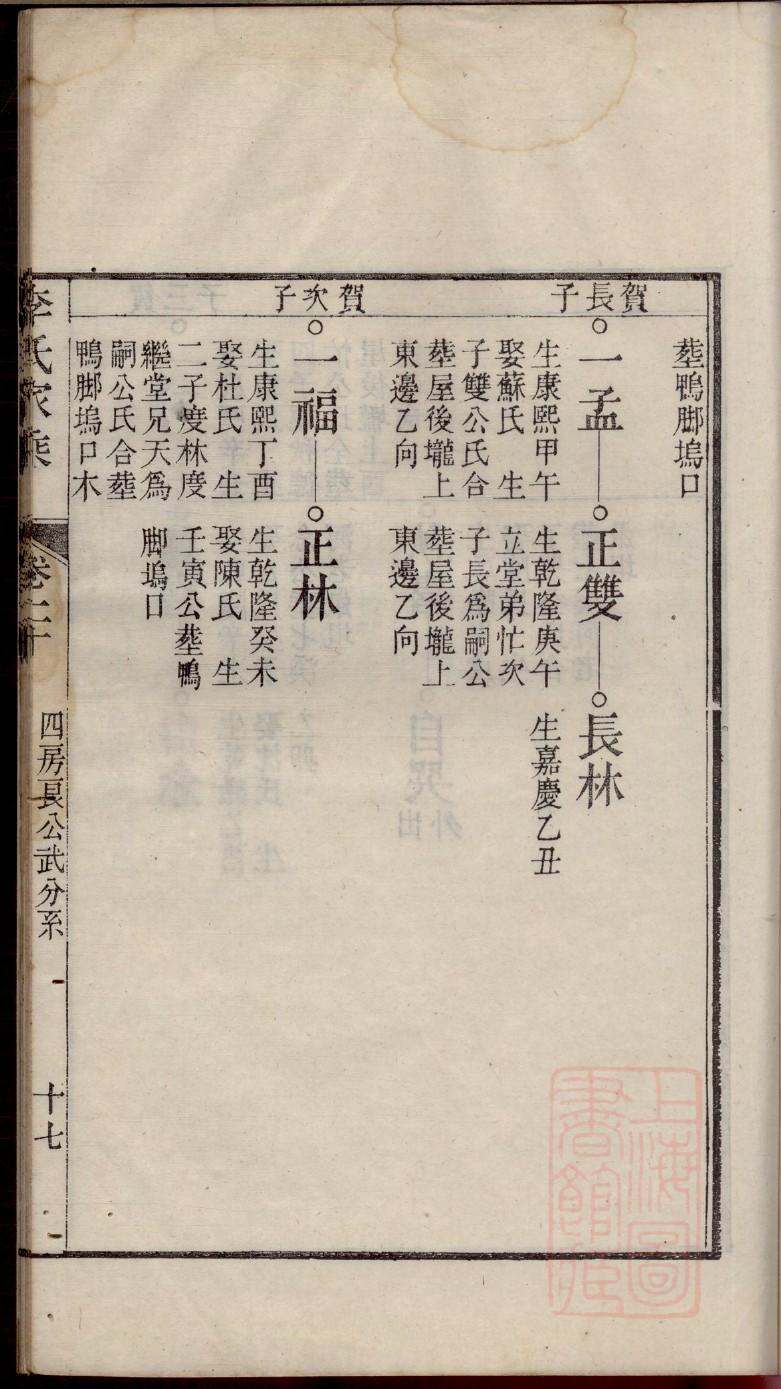 塟鴨脚塢口
賀長子
一孟
生康熙甲午
娶蘇氏　生
子雙公氏合
塟屋後壠上
東邊乙向
正雙
生乾隆庚午
立堂弟忙次
子長為嗣公
塟屋後壠上
東邊乙向
長林
生嘉慶乙丑
賀次子
一福
生康熙丁酉
娶杜氏　生
二子度林度
繼堂兄天為
嗣公氏合塟
鴨脚塢口木
正林
生乾隆癸未
娶陳氏　生
壬寅公塟鴨
脚塢口
李氏家乘
卷二十
四房良公武分系
十七
上海圖
書館藏